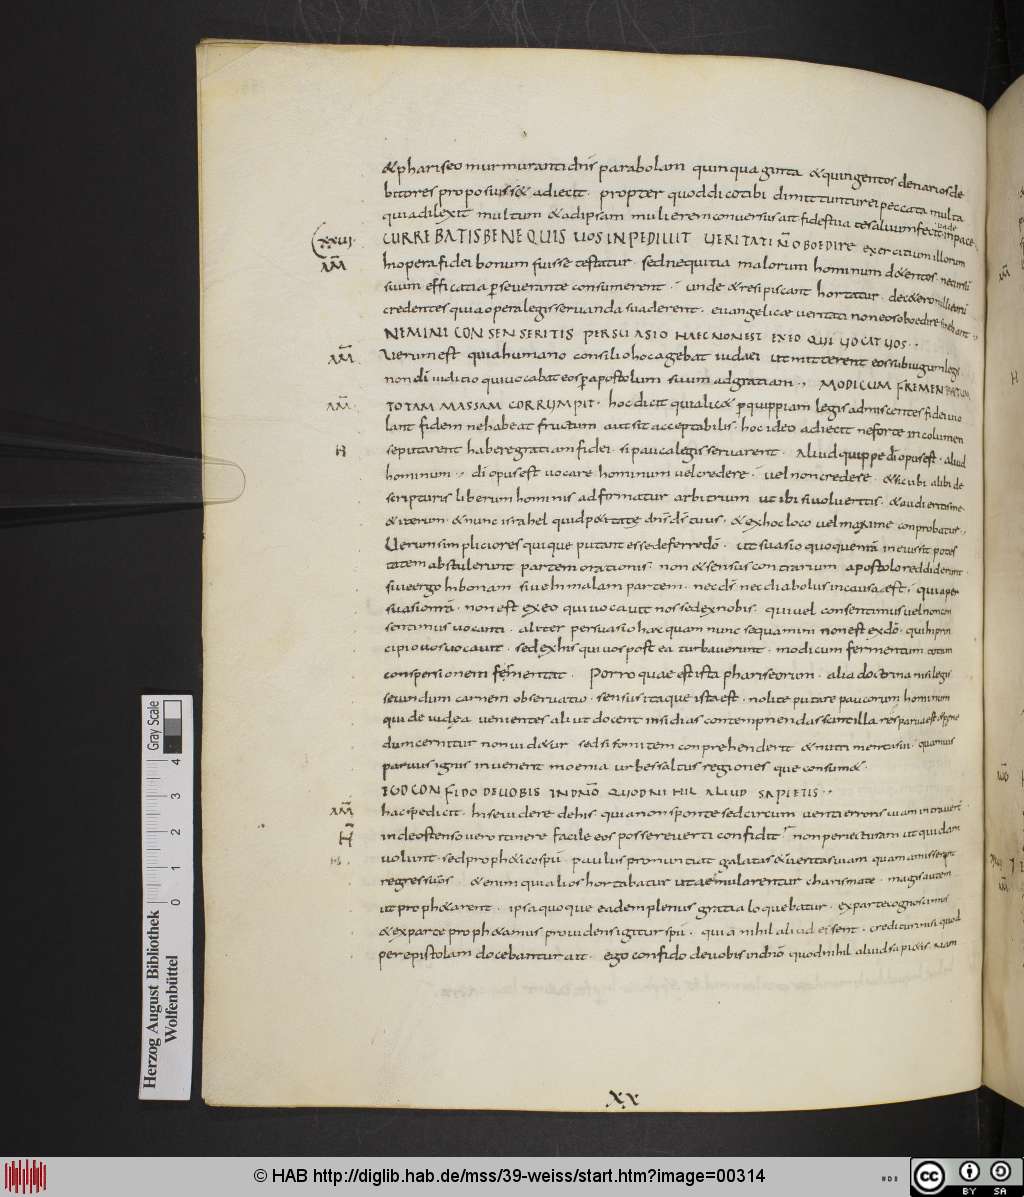 & phariseo murmuranti dn̄s parabolam quinquaginta & quingentos denarios de
bitores proposuiss& adiecit · propter quod dico tibi dimittuntur ei peccata multa
quia dilexit multum & ad ipsam mulierem conversus ait fides tua te salvum fecit vade in pace
XXVI· CURREBATIS BENE QUIS VOS INPEDIVIT VERITATI N̄ OBOEDIRE exercitium illorum
AM̄ In opera fidei bonum fuisse testatur · sed nequitia malorum hominum docentos
suum efficatia perseverante consumerent · unde & resipiscant hortatur
credentes quia opera legis servanda suaderent · evangelicæ veritati non eos oboedire
NEMINI CONSENSERITIS PERSUASIO HAEC NON EST EX EO QUI VOCAT VOS ·
AM̄ Verum est quia humano consilio hoc agebat iudaei ut mitterent eos sub iugum legis
non di iuditio qui vocabat eos p apostolum suum ad gratiam · MODICUM FREMENTATUM
AM̄· TOTAM MASSAM CORRUMPIT · hoc dicit quia lic& p quippiam legis admiscentes fidei vio
lant fidem ne habeat fructum aut sit acceptabilis · hoc ideo adiecit ne forte incolumen
H se putarent habere gratiam fidei · si pauca legis servarent · Aliud quippe di opus est · aliud
hominum · di opus est vocare hominum vel credere · vel non credere · & sicubi alibi de
scripturis liberum hominis ad formatur arbitrium ut ibi si volueritis · & audieritis me
& iterum · & nunc israhel quid p&it a te dn̄s ds̄ tuus · & ex hoc loco vel maxime conprobatur ·
Verum simpliciores quique putant esse deferre dō · ut suasio quoque in eius sit potes
tatem abstulerunt partem orationis · non & sensus contrarium apostolo reddiderunt ·
sive ergo In bonam sive In malam partem · nec ds̄ nec diabolus in causa est · quia per
suasio nr̄a · non est ex eo qui vocavit nos sed ex nobis · qui vel consentimus vel non con
sentimus vocanti · aliter persuasio hæc quam nunc sequamini non est ex dō · qui In prin
cipio vos vocavit · sed ex his qui vos post ea turbaverunt · modicum fermentum totam
conspersionem fermentat · Porro quae est ista phariseorum · alia doctrina nisi legis
secundum carnem observatio · sensus itaque ista est · nolite putare paucorum hominum
qui de iudea venientes aliut docent insidias contempnendas scintilla res parva est & pene
dum cernitur non vid&ur sed si fomitem conprehenderit & nutrimenta sui · quamvis
parvus ignis invenerit moenia urbes saltus regiones que consum& ·
EGO CONFIDO DE VOBIS IN DN̄O QUOD NIHIL ALIUD SAPIETIS ·
AM̄ hac spe dicit · In se videre de his quia non sponte sed circum venti erroris viam intraverunt
H̄ inde ostenso vero itinere facile eos posse reverti confidit · non per iecturam ut quidam
H· volunt · sed proph&ico spu · paulus pronuntiat galatas & veritas viam quam amisserunt
regressuros · & enim qui alios hortabatur ut aemularentur charismate · magis autem
ut proph&arent · ipsa quoque eadem plenus gratia loquebatur · ex parte cognoscimus
& ex parte proph&amus providens igitur spu · quia nihil aliud essent · credituri nisi quod
per epistolam docebantur ait · ego confido de vobis in dn̄o quod nihil aliud sapi&is · Nam
XX
Herzog August Bibliothek
Wolfenbüttel
Gray Scale
0 1 2 3 4
© HAB http://diglib.hab.de/mss/39-weiss/start.htm?image=00314
cc BY SA